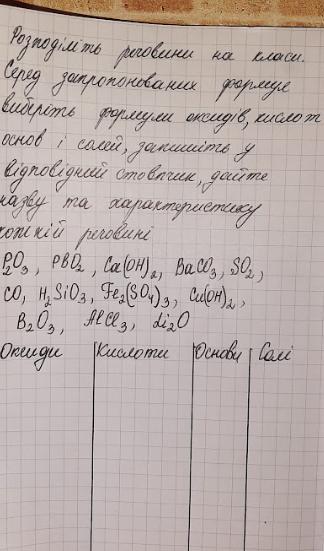 Розподіліть речовини на класи.
Серед запропонованих формул
виберіть формули оксидів, кислот
основ і солей, запишіть у
відповідний стовпчик, дайте
назву та характеристику
кожній речовині
P₂O₃, PBO₂, Ca(OH)₂, BaCO₃, SO₂,
CO, H₂SiO₃, Fe₂(SO₄)₃, Cu(OH)₂,
B₂O₃, AlCl₃, Li₂O
Оксиди | Кислоти | Основи | Солі